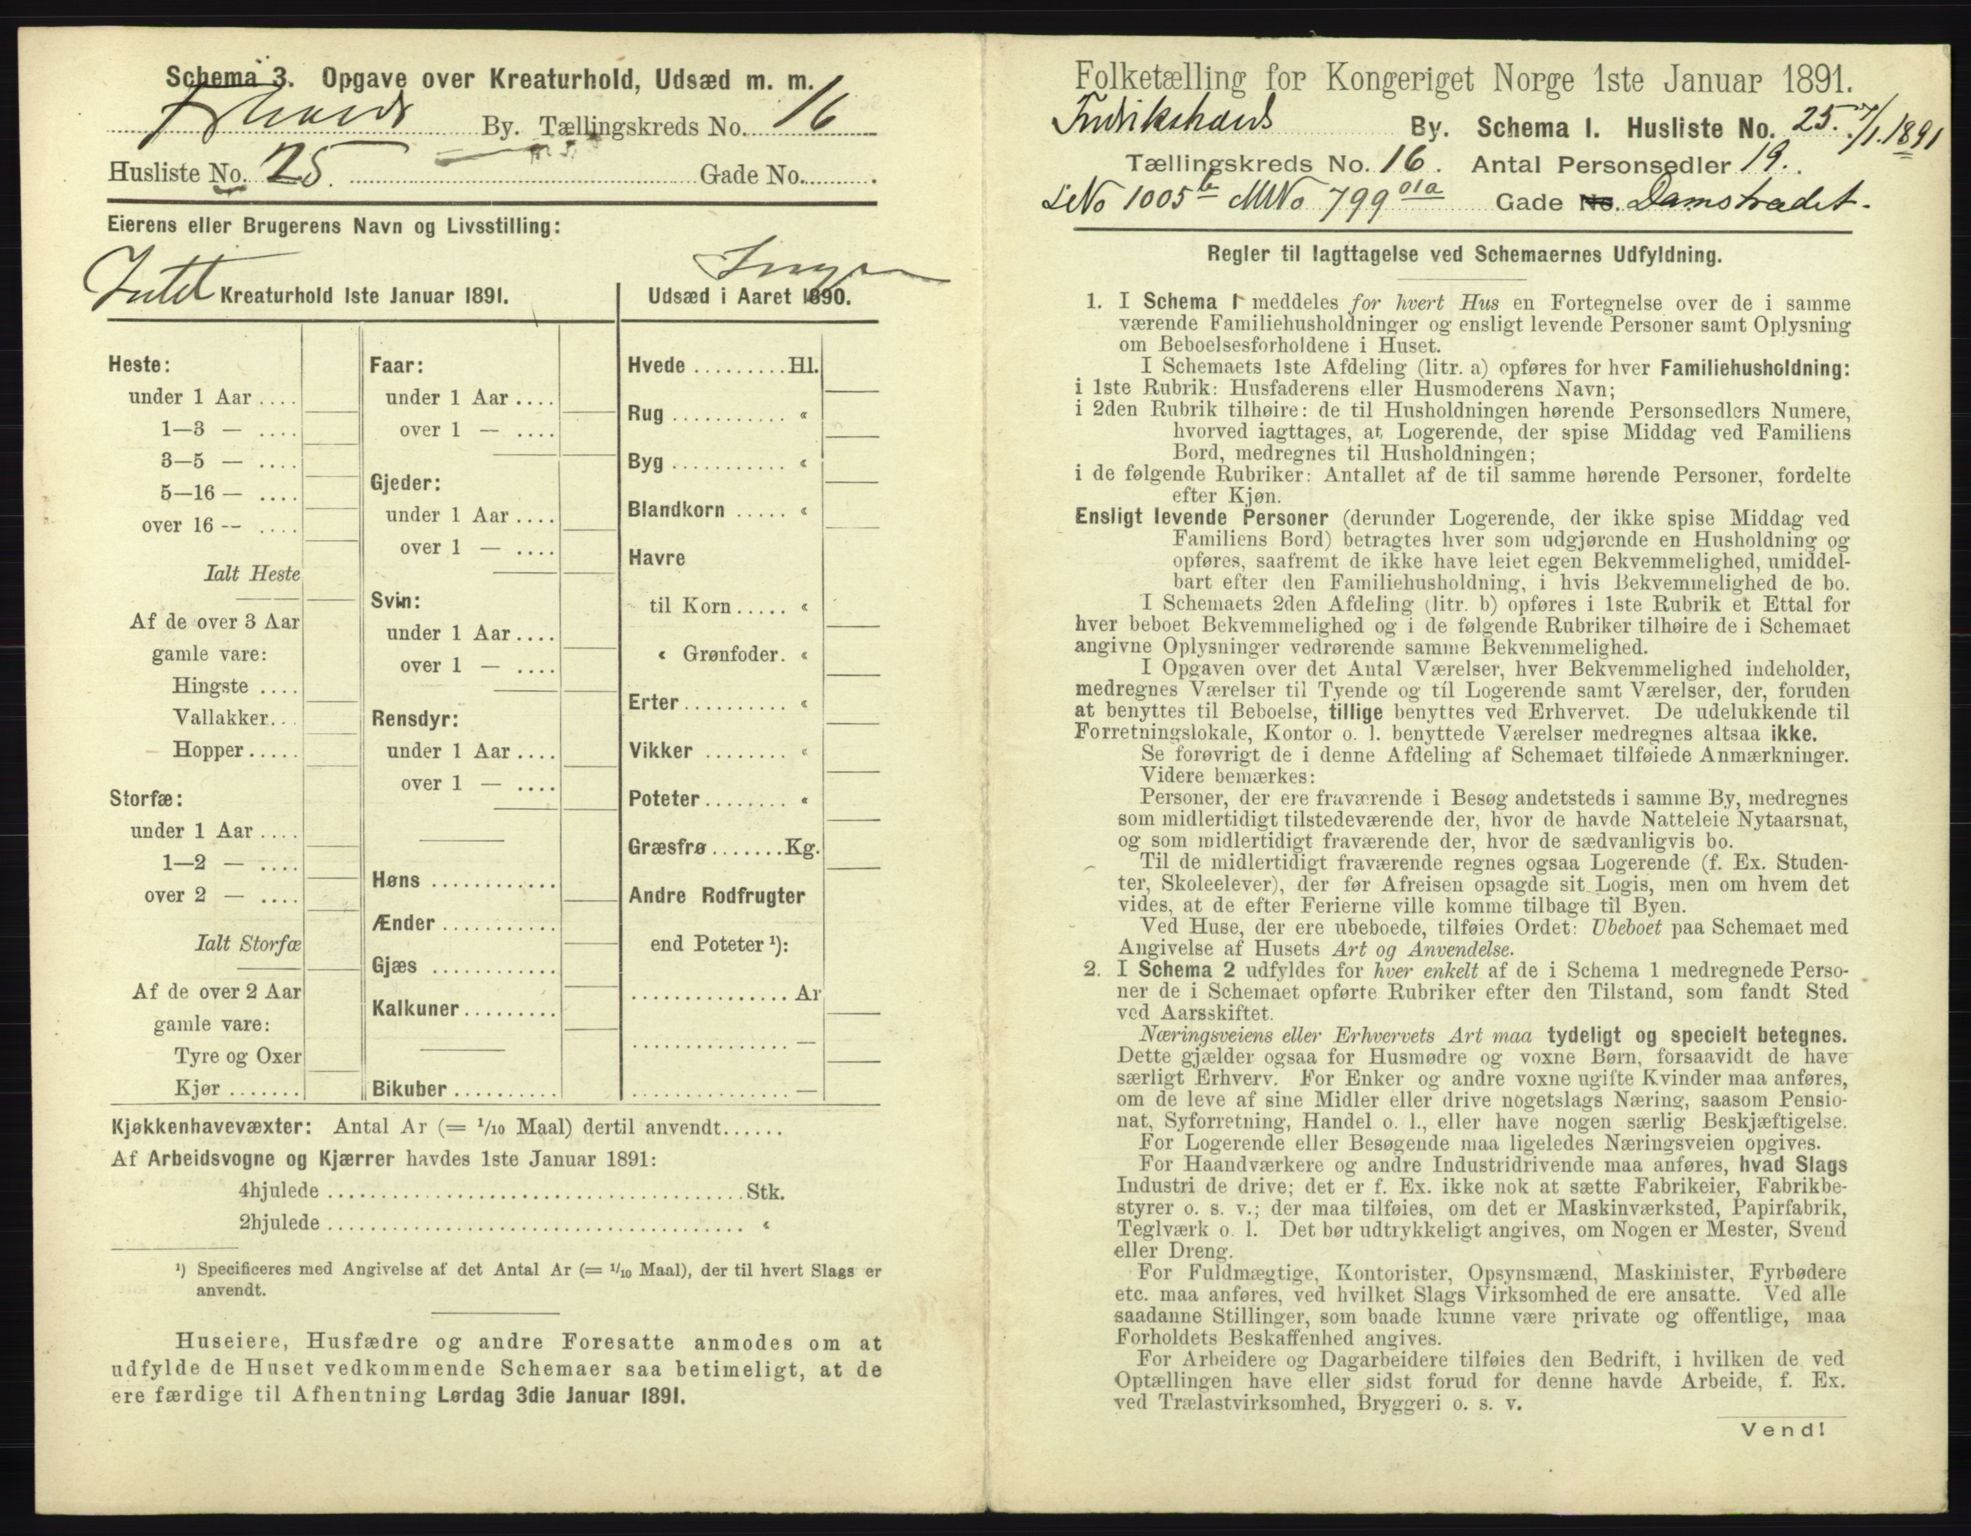 Schema 3. Opgave over Kreaturhold, Udsæd m. m.
By. Tællingskreds No. 16
Husliste No. 25. Gade No. .
Eierens eller Brugerens Navn og Livsstilling:
Intet Kreaturhold 1ste Januar 1891.
Ingen
Udsæd i Aaret 1890.
Heste:
under 1 Aar ....
1—3 — ....
3—5 — ....
5—16 — ....
over 16 -- ....
Ialt Heste
Af de over 3 Aar
gamle vare:
Hingste ....
Vallakker...
Hopper.....
Storfæ:
under 1 Aar ....
1—2 — ....
over 2 — ....
Ialt Storfæ
Af de over 2 Aar
gamle vare:
Tyre og Oxer
Kjør .......
Faar:
under 1 Aar ....
over 1 — ....
Gjeder:
under 1 Aar ....
over 1 — ....
Svin:
under 1 Aar ....
over 1 — ....
Rensdyr:
under 1 Aar ....
over 1 — ....
Høns ............
Ænder ...........
Gjæs ............
Kalkuner.........
Bikuber ..........
Hvede .........Hl.
Rug ........... «
Byg ........... «
Blandkorn ..... «
Havre
til Korn ..... «
« Grønfoder. «
Erter.......... «
Vikker ........ «
Poteter........ «
Græsfrø .......Kg.
Andre Rodfrugter
end Poteter ¹):
............... Ar
............... —
............... —
Kjøkkenhavevæxter: Antal Ar (= 1/10 Maal) dertil anvendt......
Af Arbeidsvogne og Kjærrer havdes 1ste Januar 1891:
4hjulede ..................................... Stk.
2hjulede ..................................... «
¹) Specificeres med Angivelse af det Antal Ar (= 1/10 Maal), der til hvert Slags er
anvendt.
Huseiere, Husfædre og andre Foresatte anmodes om at
udfylde de Huset vedkommende Schemaer saa betimeligt, at de
ere færdige til Afhentning Lørdag 3die Januar 1891.
Folketælling for Kongeriget Norge 1ste Januar 1891.
Fredrikshalds By. Schema 1. Husliste No. 25. 7/1. 1891
Tællingskreds No. 16. Antal Personsedler 19.
LNo 1005 b MNo 799 01a Gade No. Damstrædet.
Regler til Iagttagelse ved Schemaernes Udfyldning.
1. I Schema 1 meddeles for hvert Hus en Fortegnelse over de i samme
værende Familiehusholdninger og ensligt levende Personer samt Oplysning
om Beboelsesforholdene i Huset.
I Schemaets 1ste Afdeling (litr. a) opføres for hver Familiehusholdning:
i 1ste Rubrik: Husfaderens eller Husmoderens Navn;
i 2den Rubrik tilhøire: de til Husholdningen hørende Personsedlers Numere,
hvorved iagttages, at Logerende, der spise Middag ved Familiens
Bord, medregnes til Husholdningen;
i de følgende Rubriker: Antallet af de til samme hørende Personer, fordelte
efter Kjøn.
Ensligt levende Personer (derunder Logerende, der ikke spise Middag ved
Familiens Bord) betragtes hver som udgjørende en Husholdning og
opføres, saafremt de ikke have leiet egen Bekvemmelighed, umiddel-
bart efter den Familiehusholdning, i hvis Bekvemmelighed de bo.
I Schemaets 2den Afdeling (litr. b) opføres i 1ste Rubrik et Ettal for
hver beboet Bekvemmelighed og i de følgende Rubriker tilhøire de i Schemaet
angivne Oplysninger vedrørende samme Bekvemmelighed.
I Opgaven over det Antal Værelser, hver Bekvemmelighed indeholder,
medregnes Værelser til Tyende og til Logerende samt Værelser, der, foruden
at benyttes til Beboelse, tillige benyttes ved Erhvervet. De udelukkende til
Forretningslokale, Kontor o. l. benyttede Værelser medregnes altsaa ikke.
Se forøvrigt de i denne Afdeling af Schemaet tilføiede Anmærkninger.
Videre bemærkes:
Personer, der ere fraværende i Besøg andetsteds i samme By, medregnes
som midlertidigt tilstedeværende der, hvor de havde Natteleie Nytaarsnat,
og som midlertidigt fraværende der, hvor de sædvanligvis bo.
Til de midlertidigt fraværende regnes ogsaa Logerende (f. Ex. Studen-
ter, Skoleelever), der før Afreisen opsagde sit Logis, men om hvem det
vides, at de efter Ferierne ville komme tilbage til Byen.
Ved Huse, der ere ubeboede, tilføies Ordet: Ubeboet paa Schemaet med
Angivelse af Husets Art og Anvendelse.
2. I Schema 2 udfyldes for hver enkelt af de i Schema 1 medregnede Perso-
ner de i Schemaet opførte Rubriker efter den Tilstand, som fandt Sted
ved Aarsskiftet.
Næringsveiens eller Erhvervets Art maa tydeligt og specielt betegnes.
Dette gjælder ogsaa for Husmødre og voxne Børn, forsaavidt de have
særligt Erhverv. For Enker og andre voxne ugifte Kvinder maa anføres,
om de leve af sine Midler eller drive nogetslags Næring, saasom Pensio-
nat, Syforretning, Handel o. l., eller have nogen særlig Beskjæftigelse.
For Logerende eller Besøgende maa ligeledes Næringsveien opgives.
For Haandværkere og andre Industridrivende maa anføres, hvad Slags
Industri de drive; det er f. Ex. ikke nok at sætte Fabrikeier, Fabrikbe-
styrer o. s. v.; der maa tilføies, om det er Maskinværksted, Papirfabrik,
Teglværk o. l. Det bør udtrykkeligt angives, om Nogen er Mester, Svend
eller Dreng.
For Fuldmægtige, Kontorister, Opsynsmænd, Maskinister, Fyrbødere
etc. maa anføres, ved hvilket Slags Virksomhed de ere ansatte. Ved alle
saadanne Stillinger, som baade kunne være private og offentlige, maa
Forholdets Beskaffenhed angives.
For Arbeidere og Dagarbeidere tilføies den Bedrift, i hvilken de ved
Optællingen have eller sidst forud for denne havde Arbeide, f. Ex.
ved Trælastvirksomhed, Bryggeri o. s. v.
Vend!